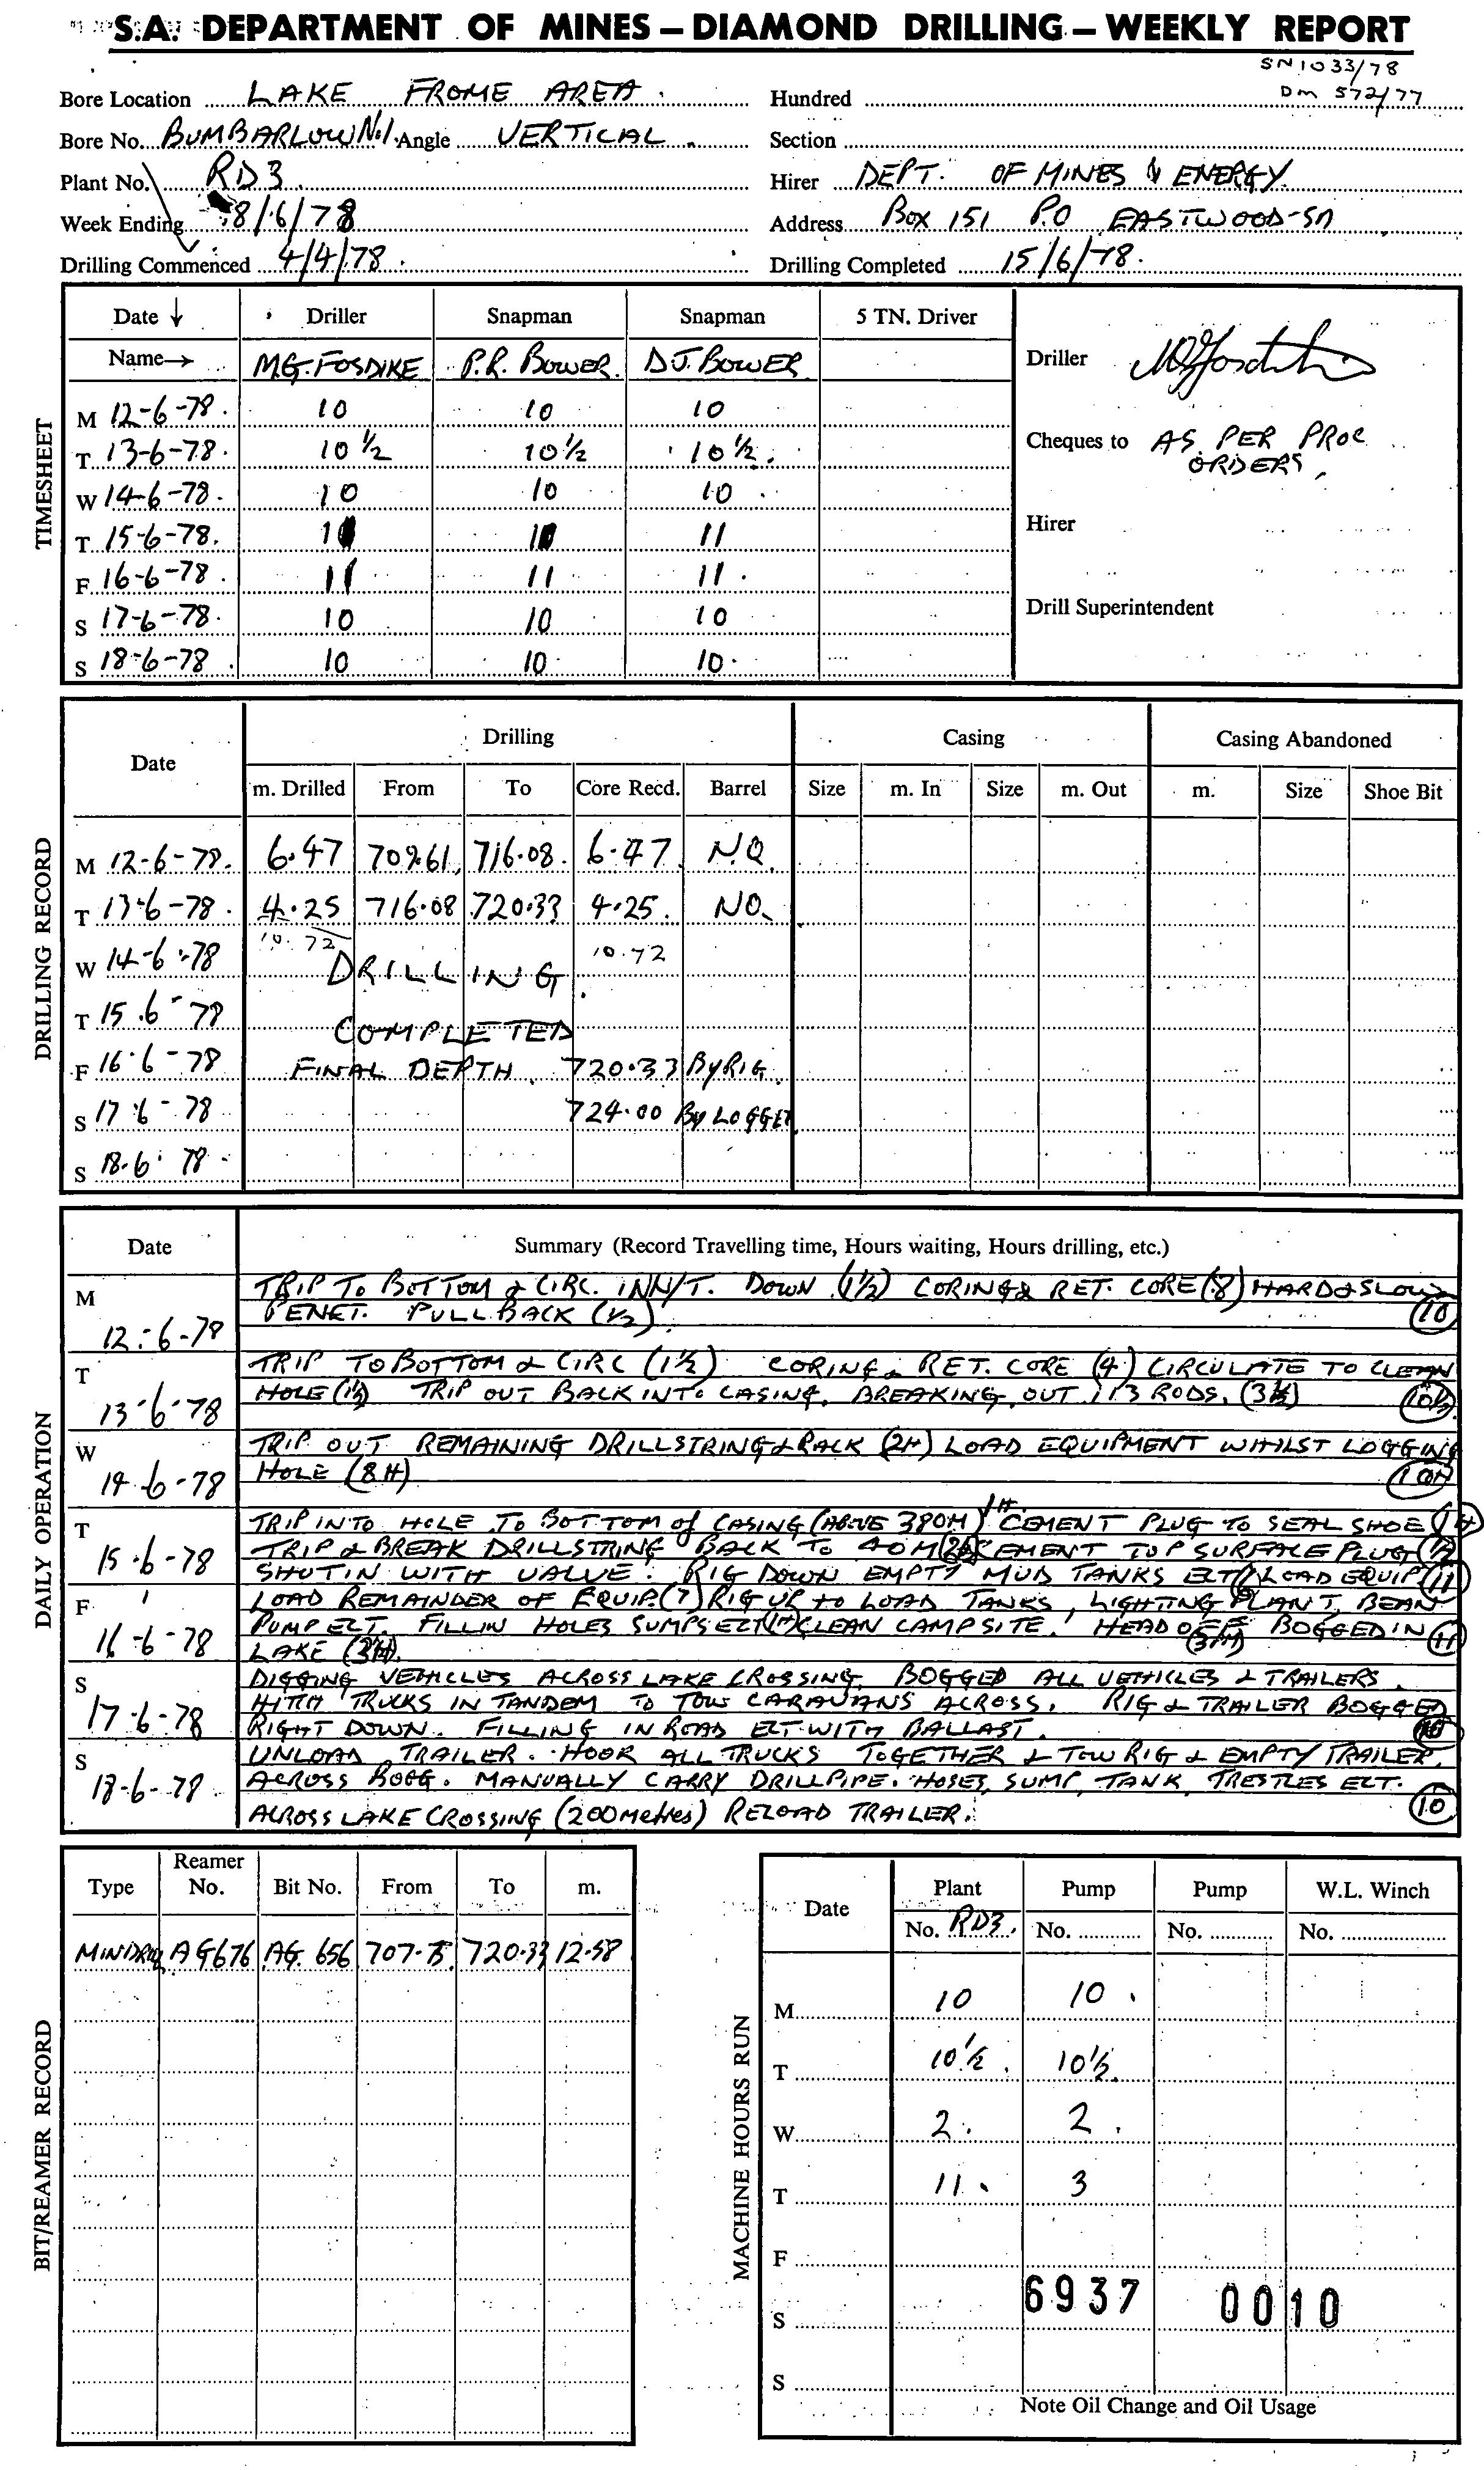 S.A. DEPARTMENT OF MINES – DIAMOND DRILLING – WEEKLY REPORT
SN 1033/78
Bore Location LAKE FROME AREA. Hundred DM 572/77
Bore No. BUMBARLOW No.1. Angle VERTICAL. Section
Plant No. RD3. Hirer DEPT. OF MINES & ENERGY.
Week Ending 18/6/78 Address BOX 151 P.O EASTWOOD-SA
Drilling Commenced 4/4/78. Drilling Completed 15/6/78.
TIMESHEET
Date ↓ Driller Snapman Snapman 5 TN. Driver
Name→ M.G. FOSDIKE P.R. BOWER D.J. BOWER Driller
M 12-6-78. 10 10 10
T 13-6-78. 10 1/2 10 1/2 10 1/2. Cheques to AS PER PROC ORDERS,
W 14-6-78. 10 10 10
T 15-6-78. 11 11 11 Hirer
F 16-6-78. 11 11 11.
S 17-6-78. 10 10 10 Drill Superintendent
S 18-6-78. 10 10 10.
DRILLING RECORD
Date Drilling Casing Casing Abandoned
m. Drilled From To Core Recd. Barrel Size m. In Size m. Out m. Size Shoe Bit
M 12-6-78. 6.47 709.61 716.08. 6.47 N.Q.
T 13-6-78. 4.25 716.08 720.33 4.25. NQ.
W 14-6-78 10.72 DRILLING. 10.72
T 15.6-78 COMPLETED
F 16.6-78 FINAL DEPTH. 720.33 BY RIG.
S 17.6-78 724.00 BY LOGGER.
S 18.6.78
DAILY OPERATION
Date Summary (Record Travelling time, Hours waiting, Hours drilling, etc.)
M TRIP TO BOTTOM & CIRC. INN/T. DOWN (1 1/2) CORING & RET. CORE (8) HARD & SLOW
12-6-78 PENET. PULL BACK (1/2). (10)
T TRIP TO BOTTOM & CIRC (1 1/2) CORING & RET. CORE (4) CIRCULATE TO CLEAN
13-6-78 HOLE (1 1/2) TRIP OUT BACK INTO CASING, BREAKING OUT 113 RODS. (3 1/2) (10 1/2)
W TRIP OUT REMAINING DRILLSTRING & RACK (2H) LOAD EQUIPMENT WHILST LOGGING
14-6-78 HOLE (8H) (10H)
T TRIP INTO HOLE TO BOTTOM of CASING (ABOVE 380M) 1H. CEMENT PLUG TO SEAL SHOE (1H)
15-6-78 TRIP & BREAK DRILLSTRING BACK TO 40M CEMENT TOP SURFACE PLUG (1/2)
SHUT IN WITH VALVE. RIG DOWN EMPTY MUD TANKS ECT LOAD EQUIP (11)
F LOAD REMAINDER OF EQUIP. (7) RIG UP TO LOAD TANKS, LIGHTING PLANT, BEAN
16-6-78 PUMP ECT. FILL IN HOLES SUMPS ECT (1H) CLEAN CAMPSITE. HEAD OFF BOGGED IN (11)
LAKE (3H). (3H)
S DIGGING VEHICLES ACROSS LAKE CROSSING. BOGGED ALL VEHICLES & TRAILERS.
17-6-78 HITCH TRUCKS IN TANDEM TO TOW CARAVANS ACROSS. RIG & TRAILER BOGGED
RIGHT DOWN. FILLING IN ROAD ECT WITH BALLAST. (10)
S UNLOAD TRAILER. HOOK ALL TRUCKS TOGETHER & TOW RIG & EMPTY TRAILER.
18-6-78. ACROSS BOGG. MANUALLY CARRY DRILLPIPE. HOSES, SUMP, TANK, TRESTLES ECT.
ACROSS LAKE CROSSING (200 Metres) RELOAD TRAILER. (10)
BIT/REAMER RECORD
Type Reamer No. Bit No. From To m.
MINDRILL AG676 AG. 656 707.75 720.33 12.58
MACHINE HOURS RUN
Date Plant Pump Pump W.L. Winch
No. RD3. No. No. No.
M 10 10.
T 10 1/2. 10 1/2.
W 2. 2.
T 11. 3
F
6937 0010
S
S
Note Oil Change and Oil Usage